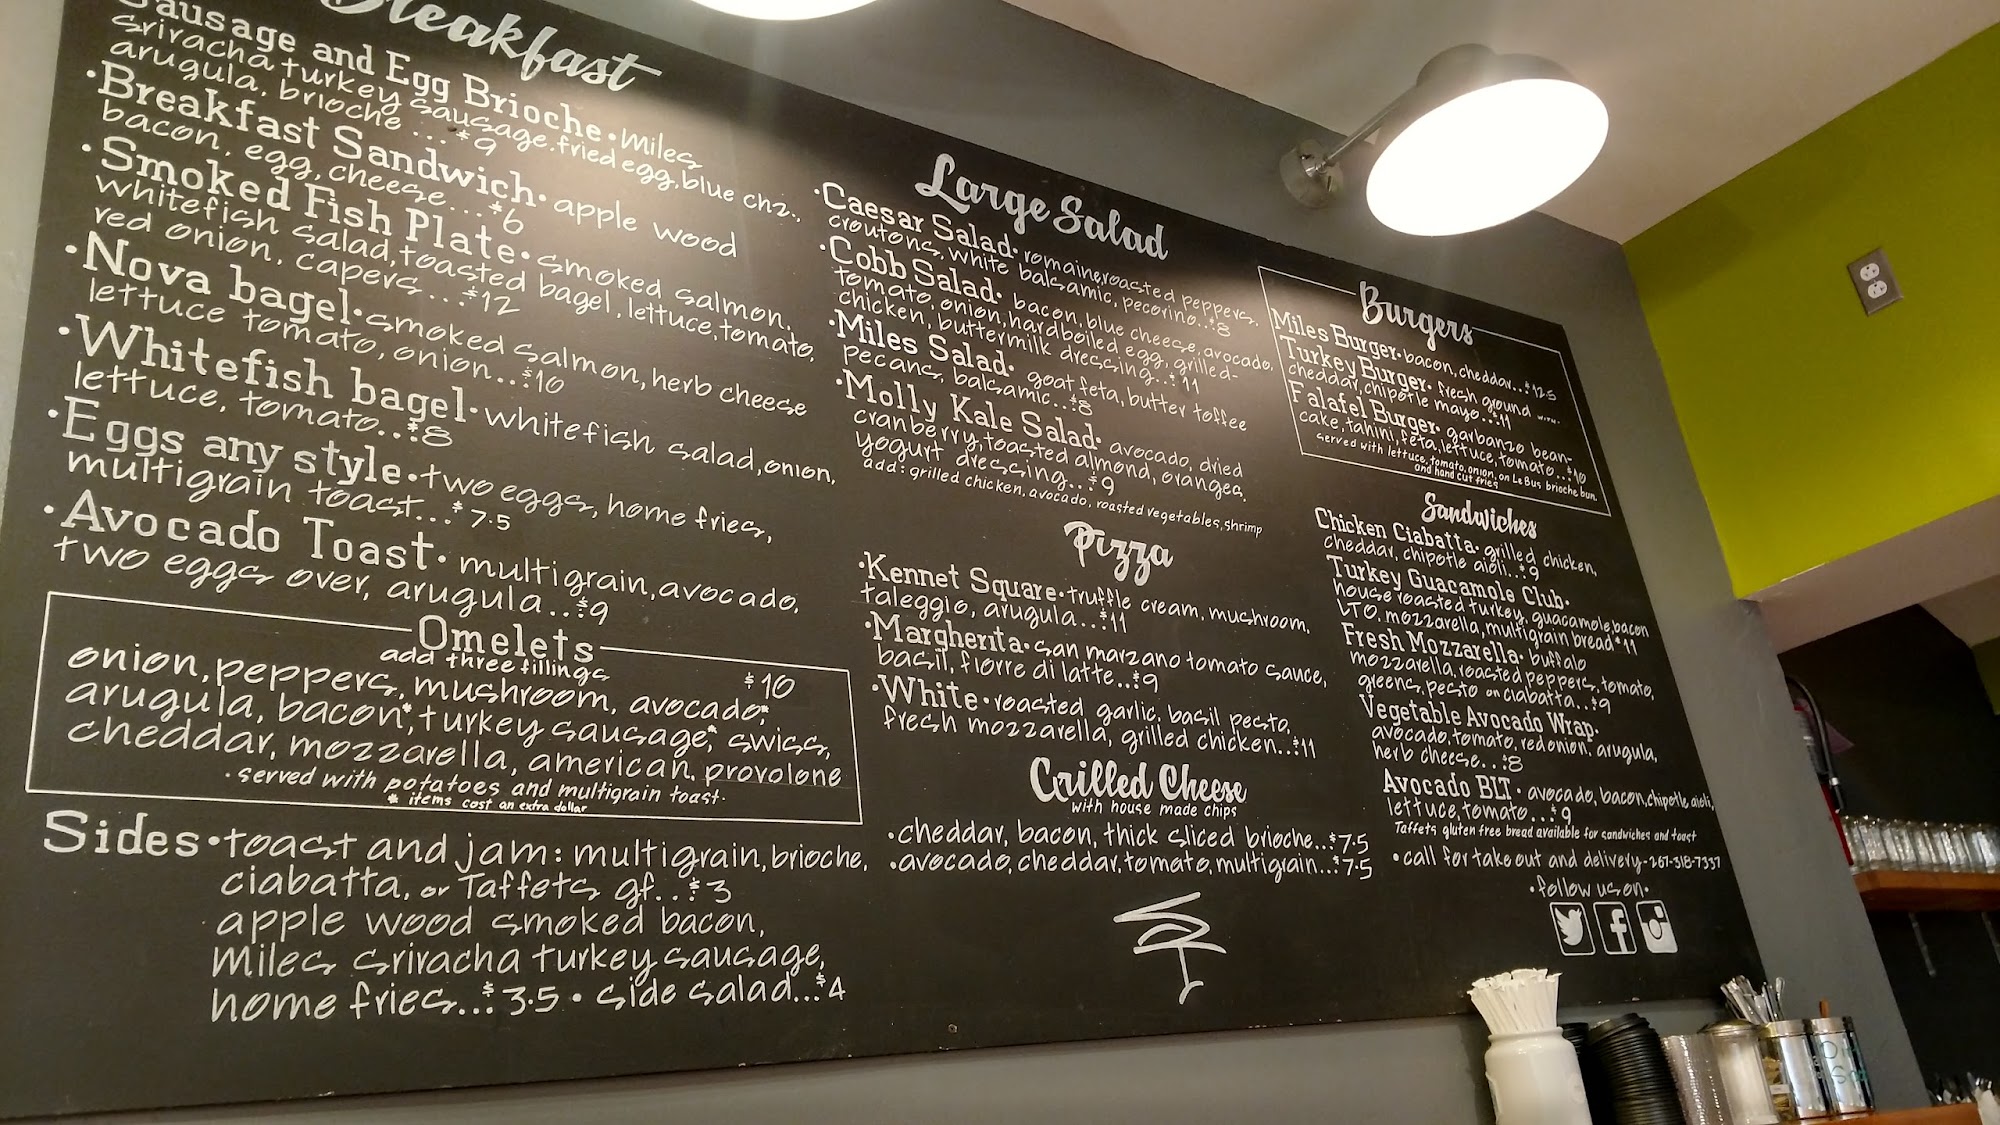 Breakfast
Sausage and Egg Brioche • Miles
sriracha turkey sausage, fried egg, blue chz.,
arugula, brioche ... $9
• Breakfast Sandwich • apple wood
bacon, egg, cheese... $6
• Smoked Fish Plate • smoked salmon,
whitefish salad, toasted bagel, lettuce, tomato,
red onion, capers ... $12
• Nova bagel • smoked salmon, herb cheese
lettuce tomato, onion... $10
• Whitefish bagel • whitefish salad, onion,
lettuce, tomato... $8
• Eggs any style • two eggs, home fries,
multigrain toast... $7.5
• Avocado Toast • multigrain, avocado,
two eggs over, arugula... $9
Omelets
add three fillings
$10
onion, peppers, mushroom, avocado,*
arugula, bacon,* turkey sausage,* swiss,
cheddar, mozzarella, american, provolone
• served with potatoes and multigrain toast •
* items cost an extra dollar
Sides • toast and jam: multigrain, brioche,
ciabatta, or Taffets gf... $3
apple wood smoked bacon,
Miles sriracha turkey sausage,
home fries... $3.5 • side salad... $4
Large Salad
• Caesar Salad • romaine, roasted peppers,
croutons, white balsamic, pecorino... $8
• Cobb Salad • bacon, blue cheese, avocado,
tomato, onion, hardboiled egg, grilled-
chicken, buttermilk dressing... $11
• Miles Salad • goat feta, butter toffee
pecans, balsamic... $8
• Molly Kale Salad • avocado, dried
cranberry, toasted almond, oranges,
yogurt dressing... $9
add: grilled chicken, avocado, roasted vegetables, shrimp
Pizza
• Kennet Square • truffle cream, mushroom,
taleggio, arugula... $11
• Margherita • san marzano tomato sauce,
basil, fiorre di latte... $9
• White • roasted garlic, basil pesto,
fresh mozzarella, grilled chicken... $11
Grilled Cheese
with house made chips
• cheddar, bacon, thick sliced brioche... $7.5
• avocado, cheddar, tomato, multigrain... $7.5
Burgers
Miles Burger • bacon, cheddar... $12.5
Turkey Burger • fresh ground
cheddar, chipotle mayo... $11
Falafel Burger • garbanzo bean-
cake, tahini, feta, lettuce, tomato... $10
served with lettuce, tomato, onion, on LeBus brioche bun,
and hand cut fries
Sandwiches
Chicken Ciabatta • grilled chicken,
cheddar, chipotle aioli... $9
Turkey Guacamole Club •
house roasted turkey, guacamole, bacon
LTO, mozzarella, multigrain bread $11
Fresh Mozzarella • buffalo
mozzarella, roasted peppers, tomato,
greens, pesto on ciabatta... $9
Vegetable Avocado Wrap •
avocado, tomato, red onion, arugula,
herb cheese... $8
Avocado BLT • avocado, bacon, chipotle aioli,
lettuce, tomato... $9
Taffets gluten free bread available for sandwiches and toast
• call for take out and delivery - 267-318-7337
• follow us on •